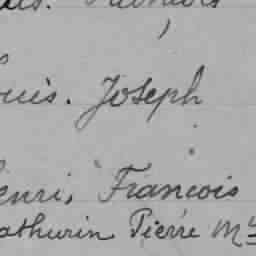 ouis. Joseph
enri, Francois
athurin Pierre M